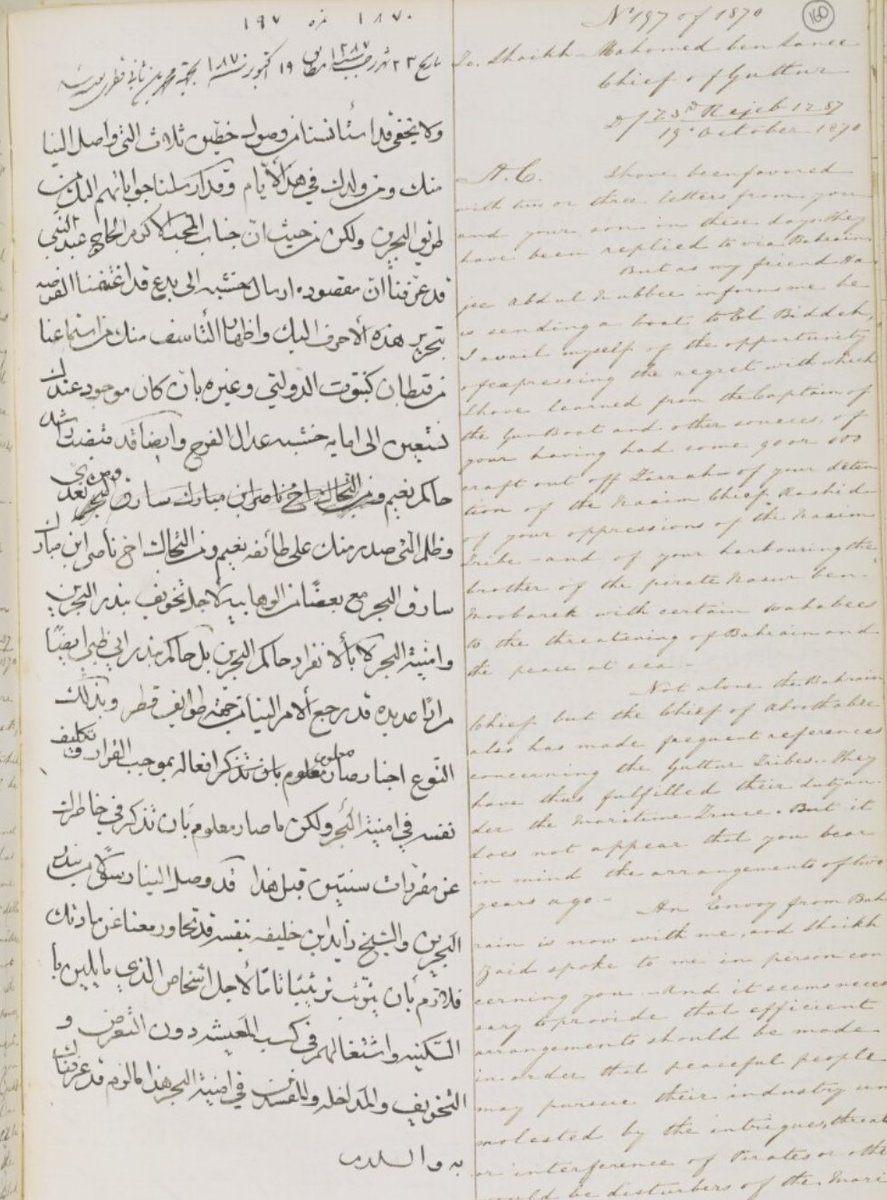 ١٨٧٠ نمره ١٩٧
تاريخ ٢٣ شهر رجب ١٢٨٧ مطابق ١٩ اكتوبر سنة ١٨٧٠ محمد بن ثاني
ولا يخفى قد استأنسنا من وصول خطين ثلاث التي واصل الينا
منك ومن ولدك في هذا الأيام وقد ارسلنا جواباتهم اليك من
طريق البحرين ولكن من حيث ان جناب المحب الاكرم الحاج عبد النبي
قد عرفنا أن مقصوده ارسال خشبه الى بدع قد اغتنمنا الفرصه
بتحرير هذه الأحرف اليك واظهار التأسف منك من استماعنا
من قبطان كنبوت الدولتي وغيره بان كان موجود عندك
تسعين الى امايه خشبه عدال الفرج وايضا قد قبضت
حاكم نعيم
وظلم التي صدر منك على طائفه نعيم ومن اخ ناصر ابن مبارك
سارق البحر مع بعضًا من الوهابيه لأجل تخويف بندر البحرين
وامنية البحر لا بألانفراد حاكم البحرين بل حاكم بندر ابي ظبي ايضًا
مرارًا عديده قد رجع ألامر الينا من جهة طوايف قطر وبذلك
النوع صار معلوم بموجب القرار
نفسه في امنية البحر ولكن ما صار معلوم بأن تذكر في خاطرك
عن مقررات سنتين قبل هذا قد وصل الينا رسولا من بندر
البحرين والشيخ زايد ابن خليفه بنفسه قد تحاور معنا عن مادتك
فلازم بأن ترتيبًا تامًا لأجل اشخاص الذي مايلين با
السكينه واشتغالهم في كسب المعيشه دون التعرض و
التخويف والمداخله والمفسدين في امنية البحر هذا مالزم قد عرفناك
به والسلام
No 197 of 1870
160
To Shaikh Mahomed ben Sanee
Chief of Guttur
D/ 23rd Rejeb 1287
19th October 1870
A.C. I have been favoured
with two or three letters from you
and your son in these days. They
have been replied to via Bahrain
But as my friend Ha-
jee Abdul Nubbee informs me he
is sending a boat to El Biddeh,
I avail myself of the opportunity
of expressing the regret with which
I have learned from the Captain of
the Gun Boat and other sources, of
your having had some 90 or 100
craft out off – of your deten-
tion of the Naaim Chief Rashid –
of your oppressions of the Naaim
Tribe – and of your harbouring the
brother of the pirate Nasur ben
Moobarek with certain Wahabees
to the threatening of Bahrain and
the peace at sea –
Not alone the Bahrain
Chief but the Chief of Aboothabee
also has made frequent references
concerning the Guttur Tribes. They
have thus fulfilled their duty un-
der the Maritime Truce. But it
does not appear that you bear
in mind the arrangements of two
years ago –
An Envoy from Bah-
rain is now with me, and Shaikh
Zaid spoke to me in person con-
cerning you. And it seems neces-
sary to provide that efficient
arrangements should be made
in order that peaceful people
may pursue their industry un-
molested by the intrigues, threats
or interference of Pirates or other
would be disturbers of the Mari